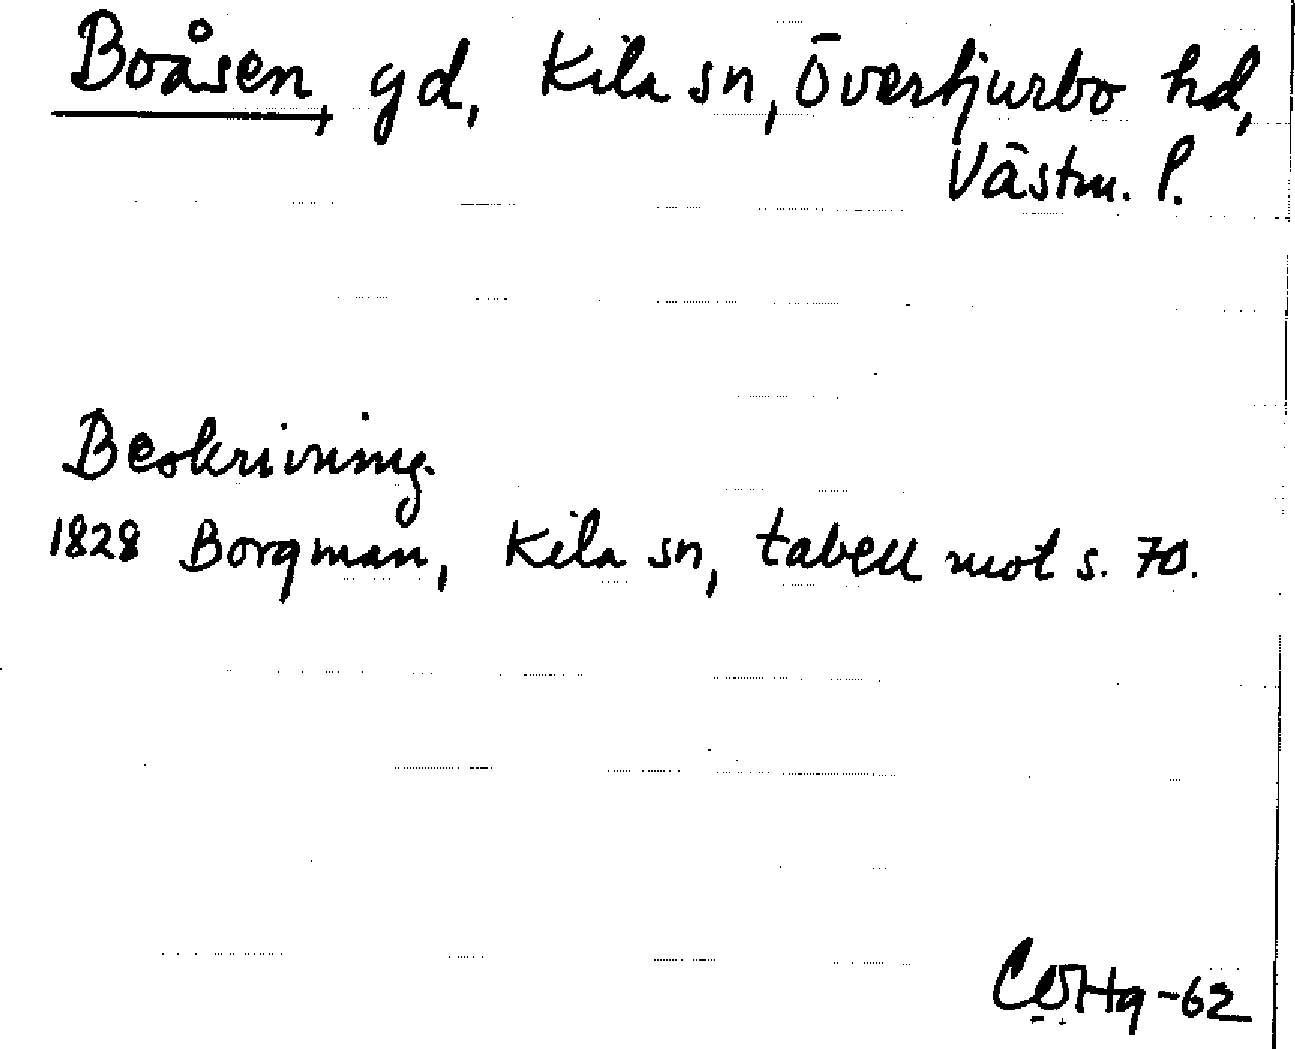 Boåsen, gd, Kila sn, Övertjurbo hd,
Västm. l.
Beskrivning
1828 Borgman, Kila sn, tabell mot s. 70.
-62